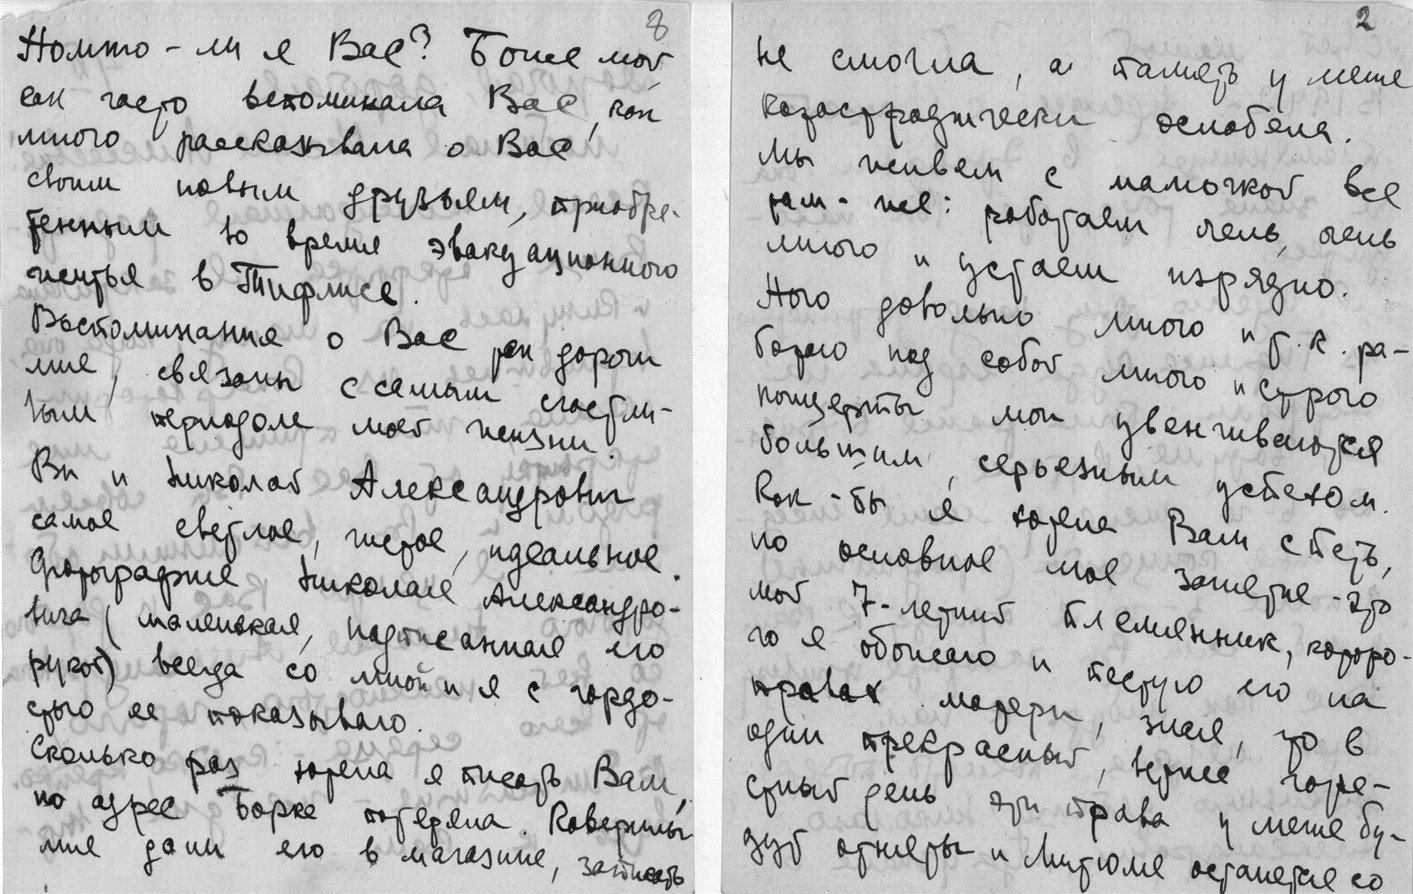 8
Помню-ли я Вас? Боже мой
как часто вспоминала Вас, как
много рассказывала о Вас
своим новым друзьям, приобре-
тенным во время эвакуационного
житья в Тифлисе.
Воспоминания о Вас так дороги
мне, связаны с самым счастли-
вым периодом моей жизни.
Вы и Николай Александрович
самое светлое, чистое, идеальное.
Фотография Николая Александро-
вича (маленькая, подписанная его
рукой) всегда со мной и я с гордо-
стью ее показываю.
Сколько раз хотела я писать Вам,
но адрес Борке потеряла.
мне дали его в магазине, записать
2
не смогла, а память у меня
катастрофически ослабела.
Мы живем с мамочкой все
там-же: работаем очень, очень
много и устаем изрядно.
Пою довольно много и т.к. ра-
ботаю над собой много и строго
концерты мои увенчиваются
большим, серьезным успехом.
Как-бы я хотела Вам спеть,
но основное мое занятие - это
мой 7-летний племянник, которо-
го я обожаю и пестую его на
правах матери, зная, что в
один прекрасный, вернее горе-
стный день эти права у меня бу-
дут отняты и Митюля останется со